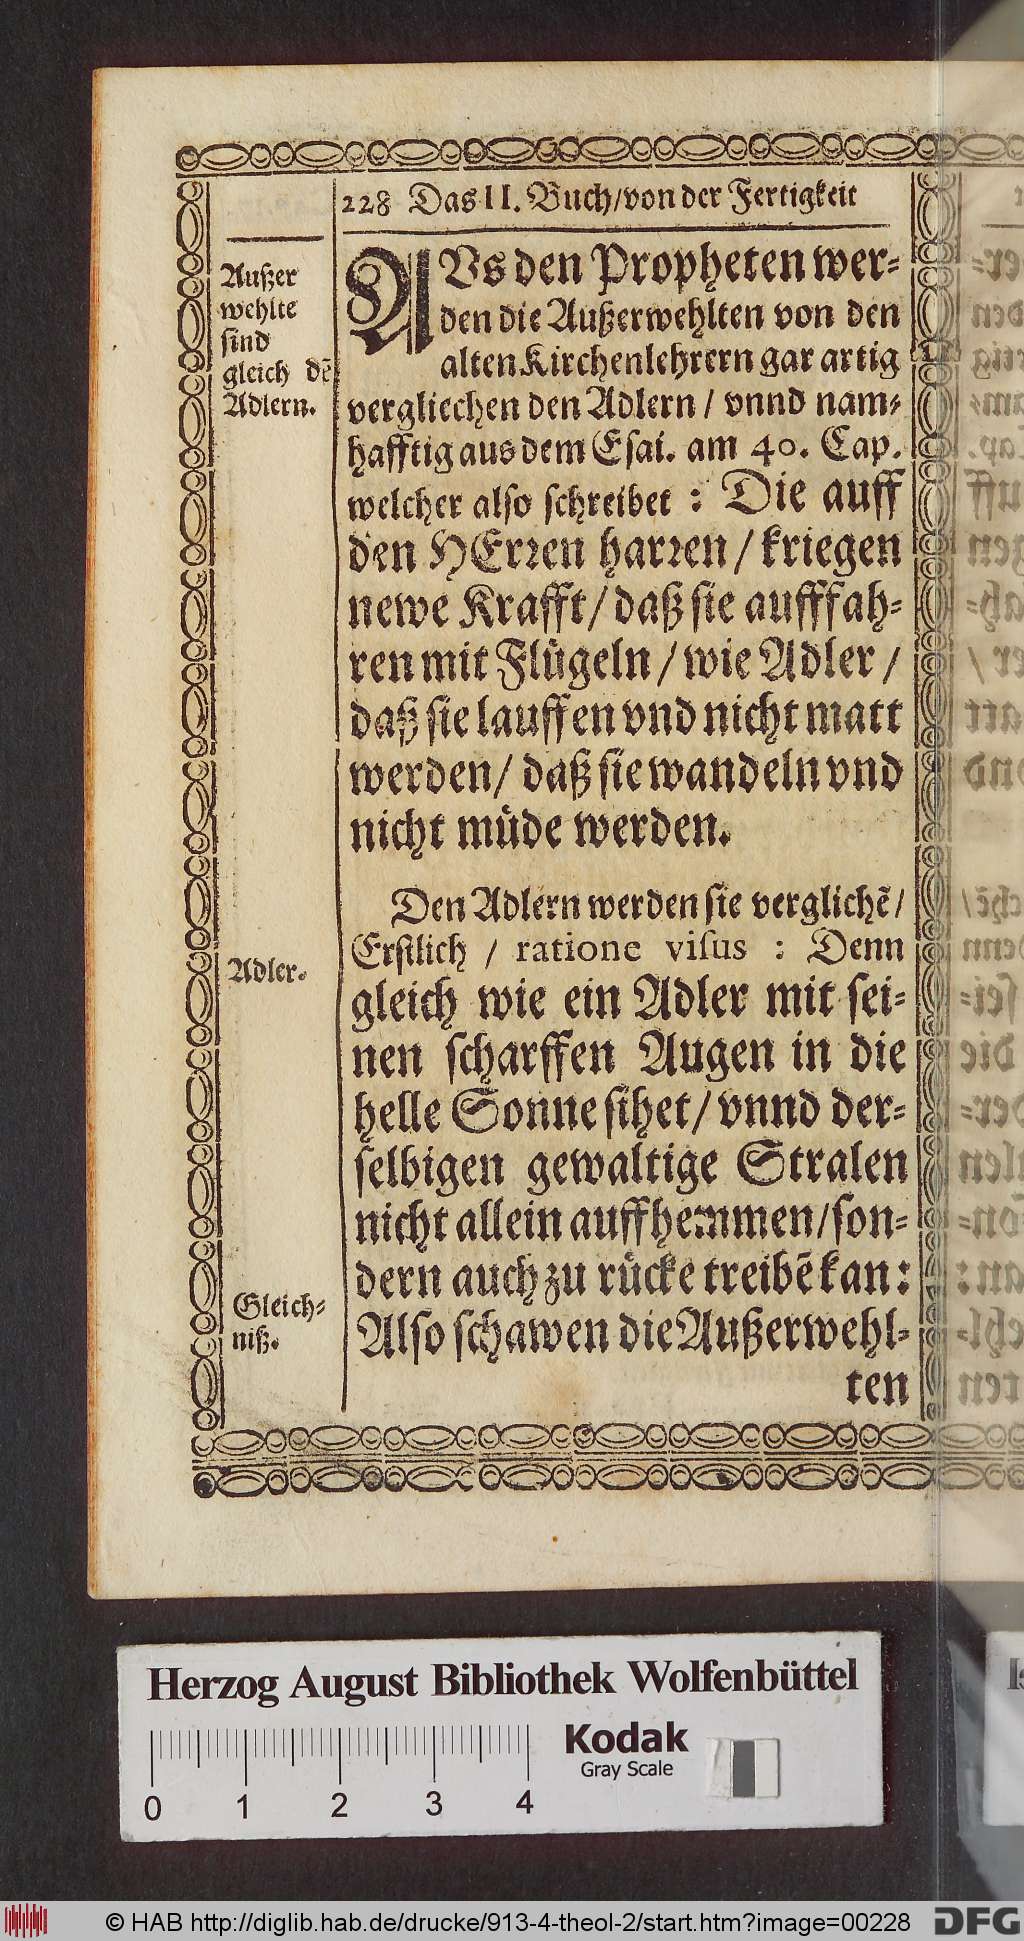 228 Das II. Buch/von der Fertigkeit
Außer
wehlte
sind
gleich dẽ
Adlern.
AVs den Propheten wer-
den die Außerwehlten von den
alten Kirchenlehrern gar artig
vergliechen den Adlern / vnnd nam-
hafftig aus dem Esai. am 40. Cap.
welcher also schreibet : Die auff
den HErren harren / kriegen
newe Krafft / daß sie aufffah-
ren mit Flügeln / wie Adler /
daß sie lauffen vnd nicht matt
werden / daß sie wandeln vnd
nicht müde werden.
Den Adlern werden sie verglichẽ /
Erstlich / ratione visus : Denn
Adler.
gleich wie ein Adler mit sei-
nen scharffen Augen in die
helle Sonne sihet / vnnd der-
selbigen gewaltige Stralen
nicht allein auffhemmen / son-
dern auch zu rücke treibẽ kan :
Gleich-
niß.
Also schawen die Außerwehl-
ten
Herzog August Bibliothek Wolfenbüttel
Kodak
Gray Scale
0 1 2 3 4
© HAB http://diglib.hab.de/drucke/913-4-theol-2/start.htm?image=00228
DFG